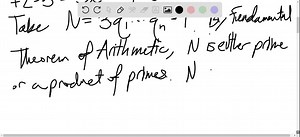 Take N = 3q₁ ⋯ qₙ - 1. By Fundamental
Theorem of Arithmetic, N is either prime
or a product of primes. N